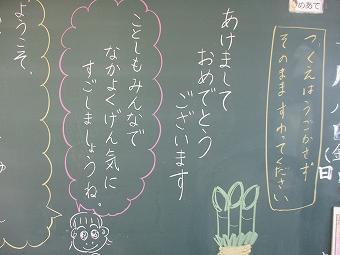 めあて
つくえはうごかさず
そのまますわってください
あけまして
おめでとう
ございます
ことしもみんなで
なかよくげん気に
すごしましょうね。
ようこそ、